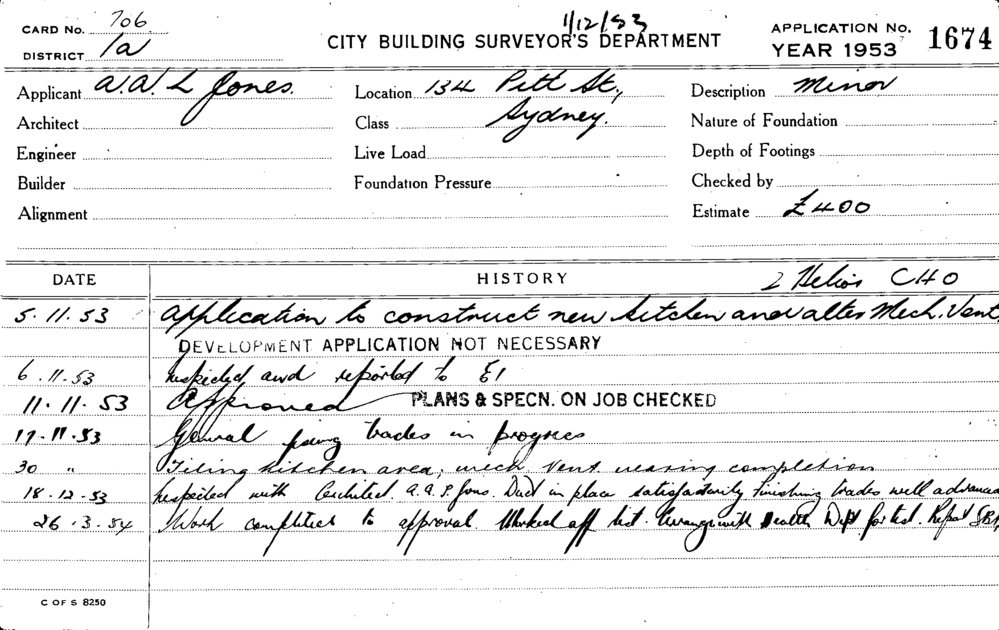 CARD No. 706. 1/12/53 APPLICATION No. 1674
DISTRICT 1a CITY BUILDING SURVEYOR'S DEPARTMENT YEAR 1953
Applicant A.A. L Jones. Location 134 Pitt St., Description Minor
Architect Class Sydney. Nature of Foundation
Engineer Live Load Depth of Footings
Builder Foundation Pressure Checked by
Alignment Estimate £400
DATE HISTORY 2 Helios CHO
5.11.53 Application to construct new kitchen and alter Mech. Vent.
DEVELOPMENT APPLICATION NOT NECESSARY
6.11.53 Inspected and reported to E1
11.11.53 Approved PLANS & SPECN. ON JOB CHECKED
17.11.53 General fixing trades in progress
30 " Tiling kitchen area; mech vent nearing completion
18.12.53 Inspected with Architect. Duct in place satisfactorily finishing trades well advanced
26.3.54 Work completed to approval. Marked off list. Arrange with Health Dept for test.
C OF S 8250